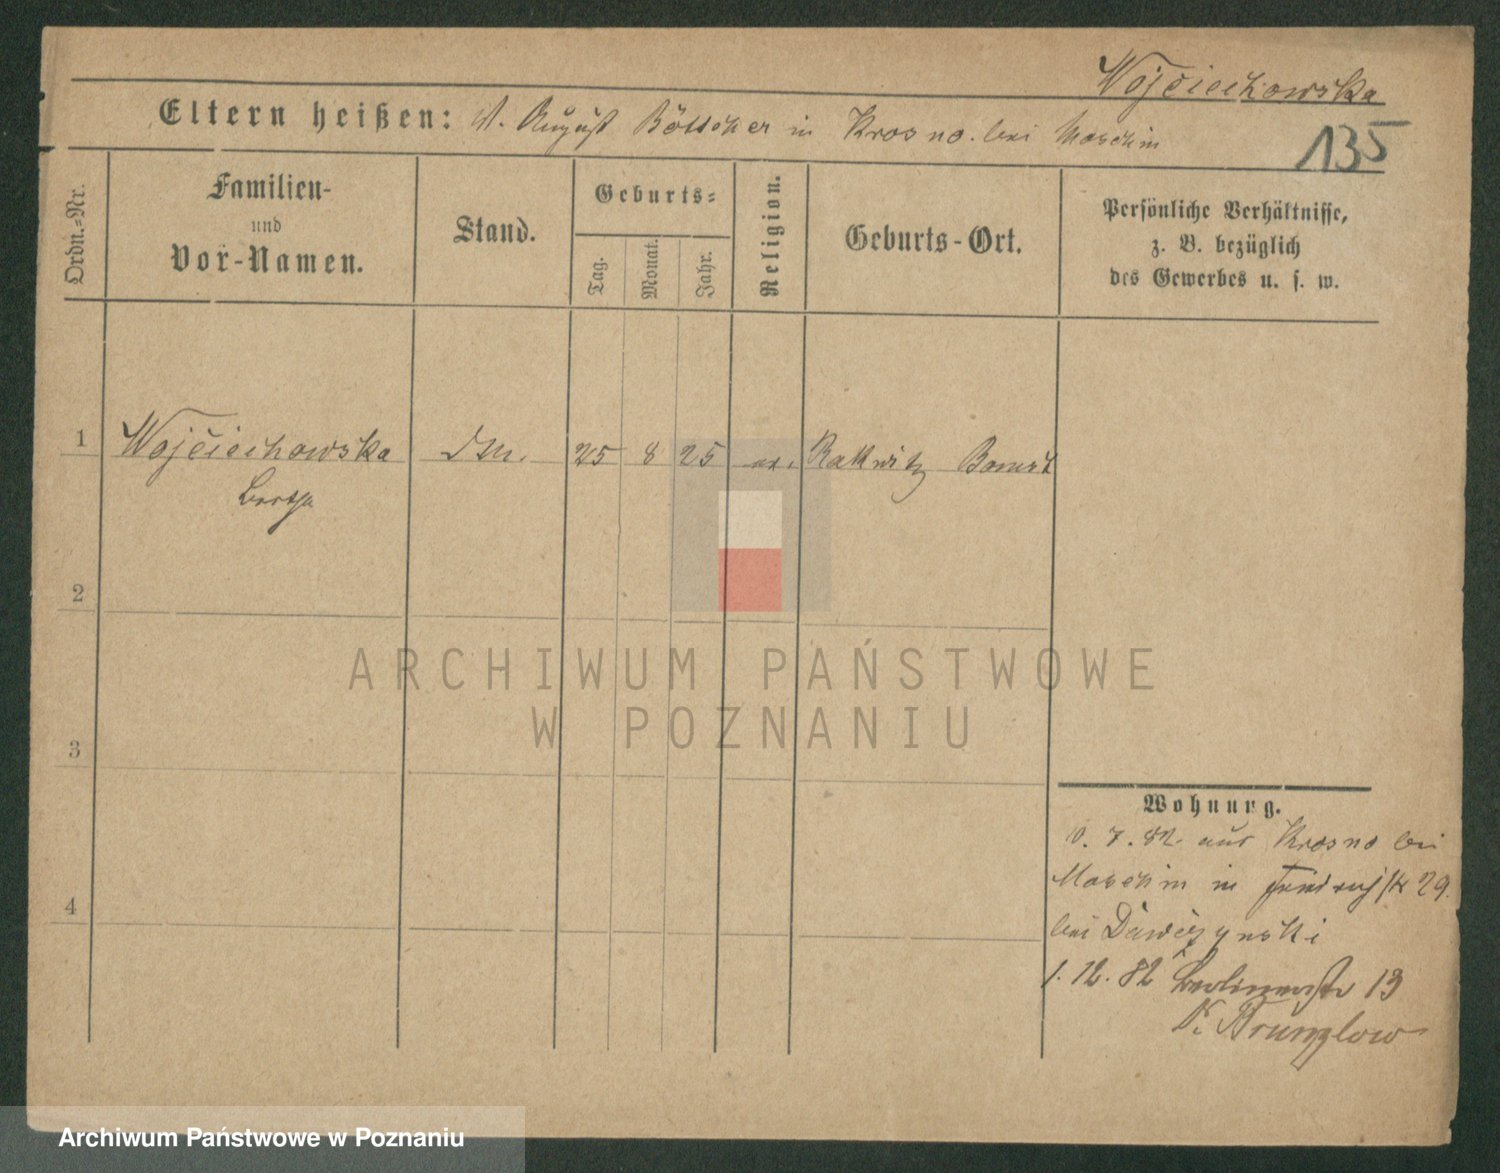 Wojciechowska
Eltern heißen: August Böttcher in Krosno bei Moschin
135
Ordn.-Nr.
Familien-
und
Vor-Namen.
Stand.
Geburts-
Tag.
Monat.
Jahr.
Religion.
Geburts-Ort.
Persönliche Verhältnisse,
z. B. bezüglich
des Gewerbes u. s. w.
1 Wojciechowska 25 8 25 Rakwitz Bomst
Bertha
2
3
4
Wohnung.
7. 82 aus Krosno bei
Moschin in 29.
bei
1. 12. 82 Berlinerstr 13